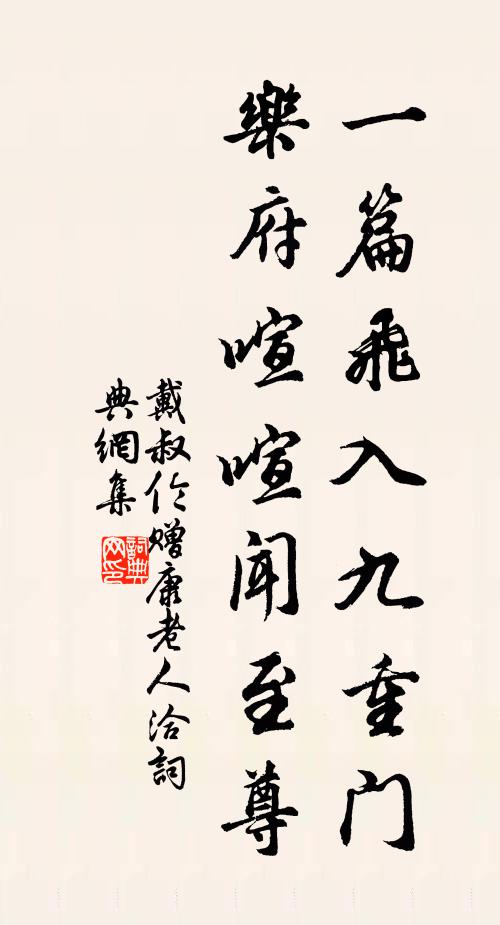 一篇飛入九重门
樂府喧喧聞至尊
戴叔伦赠康老人洽詞
典網集
詞典网印